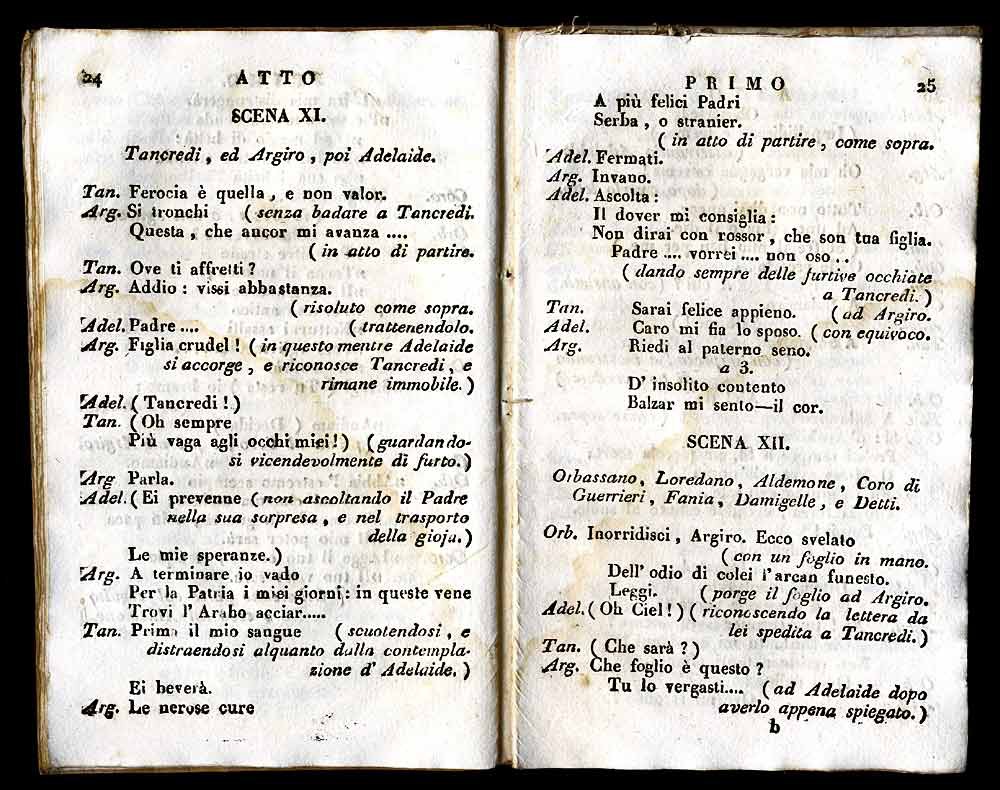 24
ATTO
SCENA XI.
Tancredi, ed Argiro, poi Adelaide.
Tan. Ferocia è quella, e non valor.
Arg. Si tronchi (senza badare a Tancredi.
Questa, che ancor mi avanza ....
(in atto di partire.
Tan. Ove ti affretti?
Arg. Addio: vissi abbastanza.
(risoluto come sopra.
Adel. Padre .... (trattenendolo.
Arg. Figlia crudel! (in questo mentre Adelaide
si accorge, e riconosce Tancredi, e
rimane immobile.)
Adel. (Tancredi!)
Tan. (Oh sempre
Più vaga agli occhi miei!) (guardando-
si vicendevolmente di furto.)
Arg Parla.
Adel. (Ei prevenne (non ascoltando il Padre
nella sua sorpresa, e nel trasporto
della gioja.)
Le mie speranze.)
Arg. A terminare io vado
Per la Patria i miei giorni: in queste vene
Trovi l' Arabo acciar.....
Tan. Prima il mio sangue (scuotendosi, e
distraendosi alquanto dalla contempla-
zione d' Adelaide.)
Ei beverà.
Arg. Le nerose cure
PRIMO
25
A più felici Padri
Serba, o stranier.
(in atto di partire, come sopra.
Adel. Fermati.
Arg. Invano.
Adel. Ascolta:
Il dover mi consiglia:
Non dirai con rossor, che son tua figlia.
Padre .... vorrei .... non oso ..
(dando sempre delle furtive occhiate
a Tancredi.)
Tan. Sarai felice appieno. (ad Argiro.
Adel. Caro mi fia lo sposo. (con equivoco.
Arg. Riedi al paterno seno.
a 3.
D' insolito contento
Balzar mi sento—il cor.
SCENA XII.
Orbassano, Loredano, Aldemone, Coro di
Guerrieri, Fania, Damigelle, e Detti.
Orb. Inorridisci, Argiro. Ecco svelato
(con un foglio in mano.
Dell' odio di colei l'arcan funesto.
Leggi. (porge il foglio ad Argiro.
Adel. (Oh Ciel!) (riconoscendo la lettera da
lei spedita a Tancredi.)
Tan. (Che sarà?)
Arg. Che foglio è questo?
Tu lo vergasti.... (ad Adelaide dopo
averlo appena spiegato.)
b